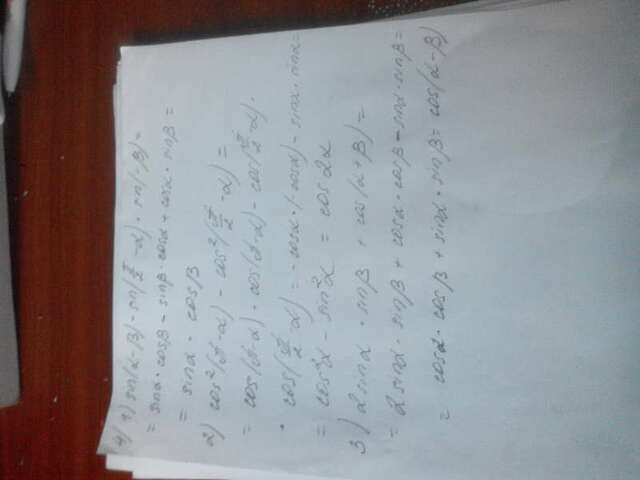 4) 1) sin(α-β) - sin(π/2 - α) · sin(-β) =
= sinα · cosβ - sinβ · cosα + cosα · sinβ =
= sinα · cosβ
2) cos²(π-α) - cos²(π/2 - α) =
= cos(π-α) · cos(π-α) - cos(π/2 - α) ·
· cos(π/2 - α) = -cosα · (-cosα) - sinα · sinα =
= cos²α - sin²α = cos2α
3) 2sinα · sinβ + cos(α+β) =
= 2sinα · sinβ + cosα · cosβ - sinα · sinβ =
= cosα · cosβ + sinα · sinβ = cos(α-β)